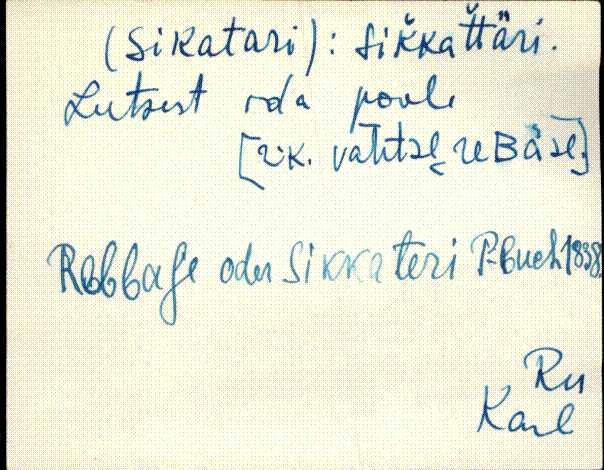 (Sikatari): sikkattäri.
Lutsust ida pool
[vk. vahtsẽ
Rebbase oder Sikka teri P-buch 1838.
Ru
Karl